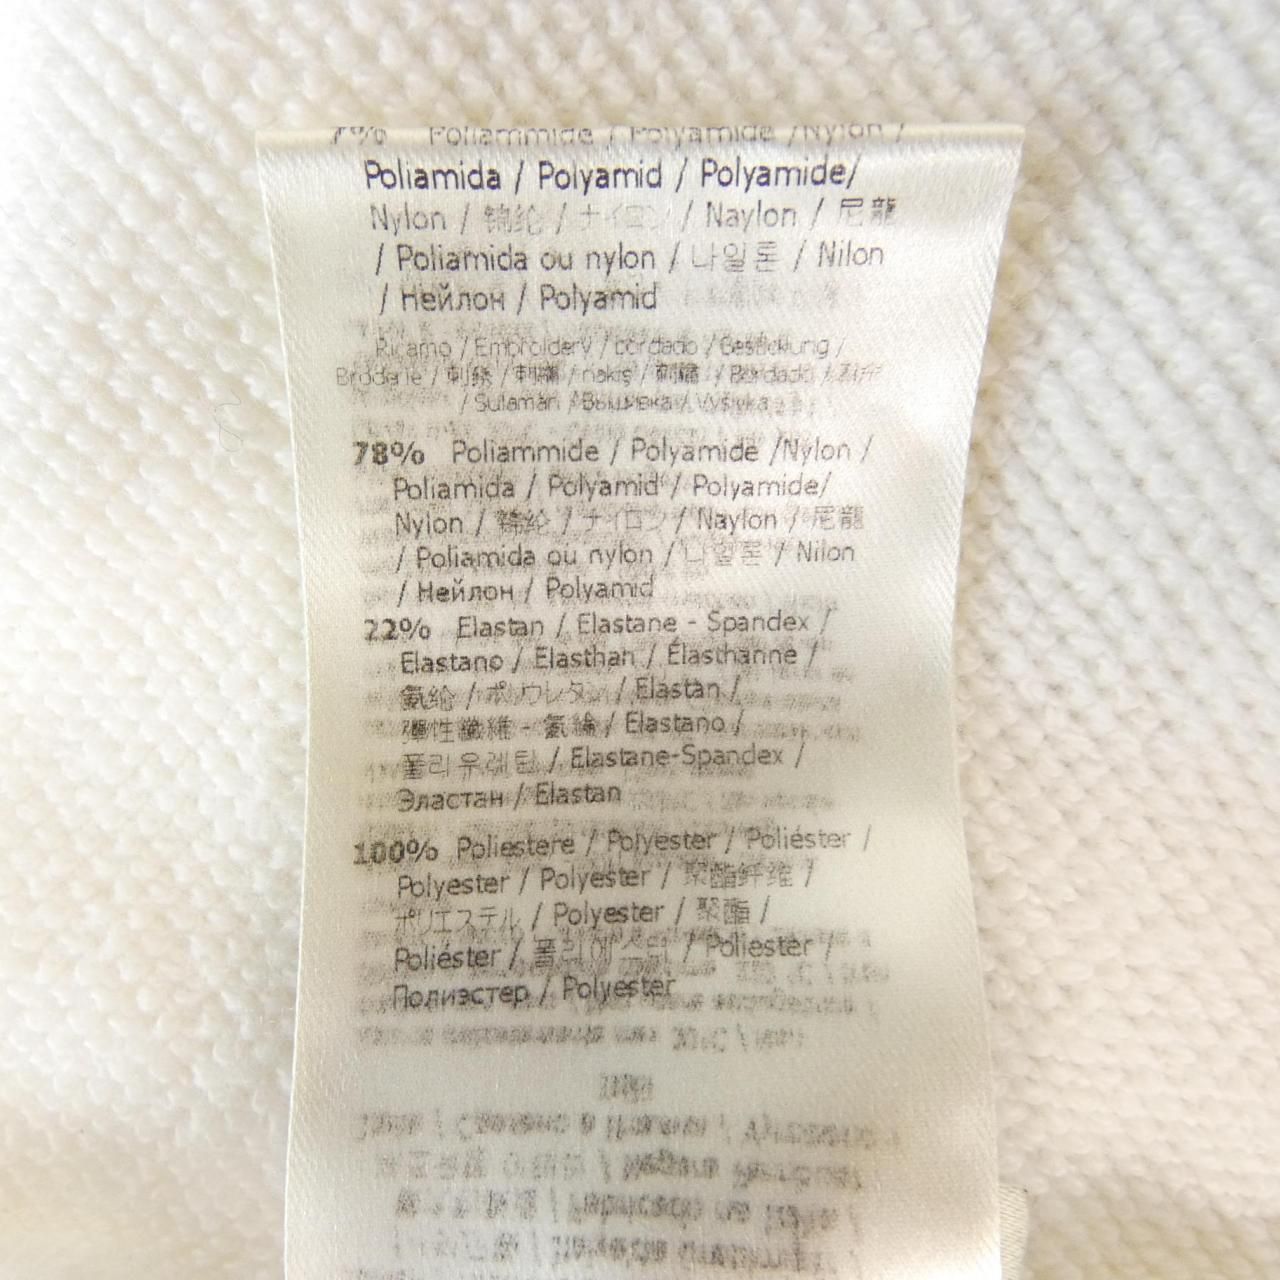 7% Poliammide / Polyamide /Nylon /
Poliamida / Polyamid / Polyamide/
Nylon / 锦纶 / ナイロン / Naylon / 尼龍
/ Poliamida ou nylon / 나일론 / Nilon
/ Нейлон / Polyamid
Ricamo / Embroidery / bordado / Bestickung /
Broderie / 刺绣 / 刺繍 / nakış / 刺繡 / Bordado / 자수
/ Sulaman / Вышивка / Výšivka
78% Poliammide / Polyamide /Nylon /
Poliamida / Polyamid / Polyamide/
Nylon / 锦纶 / ナイロン / Naylon / 尼龍
/ Poliamida ou nylon / 나일론 / Nilon
/ Нейлон / Polyamid
22% Elastan / Elastane - Spandex /
Elastano / Elasthan / Élasthanne /
氨纶 / ポリウレタン / Elastan /
彈性纖維 - 氨綸 / Elastano /
폴리우레탄 / Elastane-Spandex /
Эластан / Elastan
100% Poliestere / Polyester / Poliéster /
Polyester / Polyester / 聚酯纤维 /
ポリエステル / Polyester / 聚酯 /
Poliéster / 폴리에스터 / Poliester /
Полиэстер / Polyester